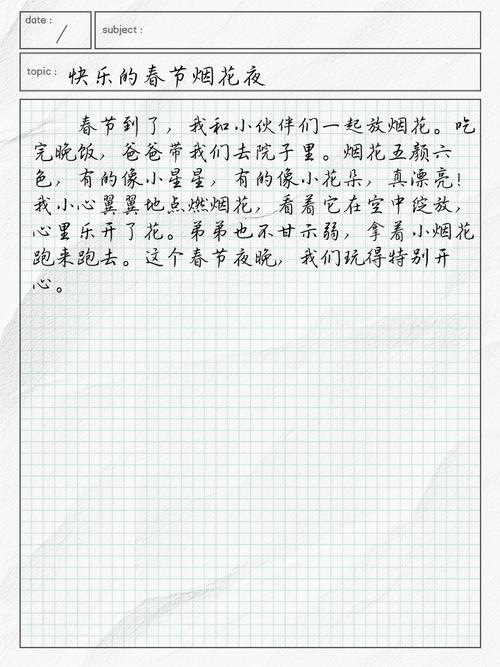 date :
/
subject :
topic : 快乐的春节烟花夜
春节到了，我和小伙伴们一起放烟花。吃
完晚饭，爸爸带我们去院子里。烟花五颜六
色，有的像小星星，有的像小花朵，真漂亮！
我小心翼翼地点燃烟花，看着它在空中绽放，
心里乐开了花。弟弟也不甘示弱，拿着小烟花
跑来跑去。这个春节夜晚，我们玩得特别开
心。